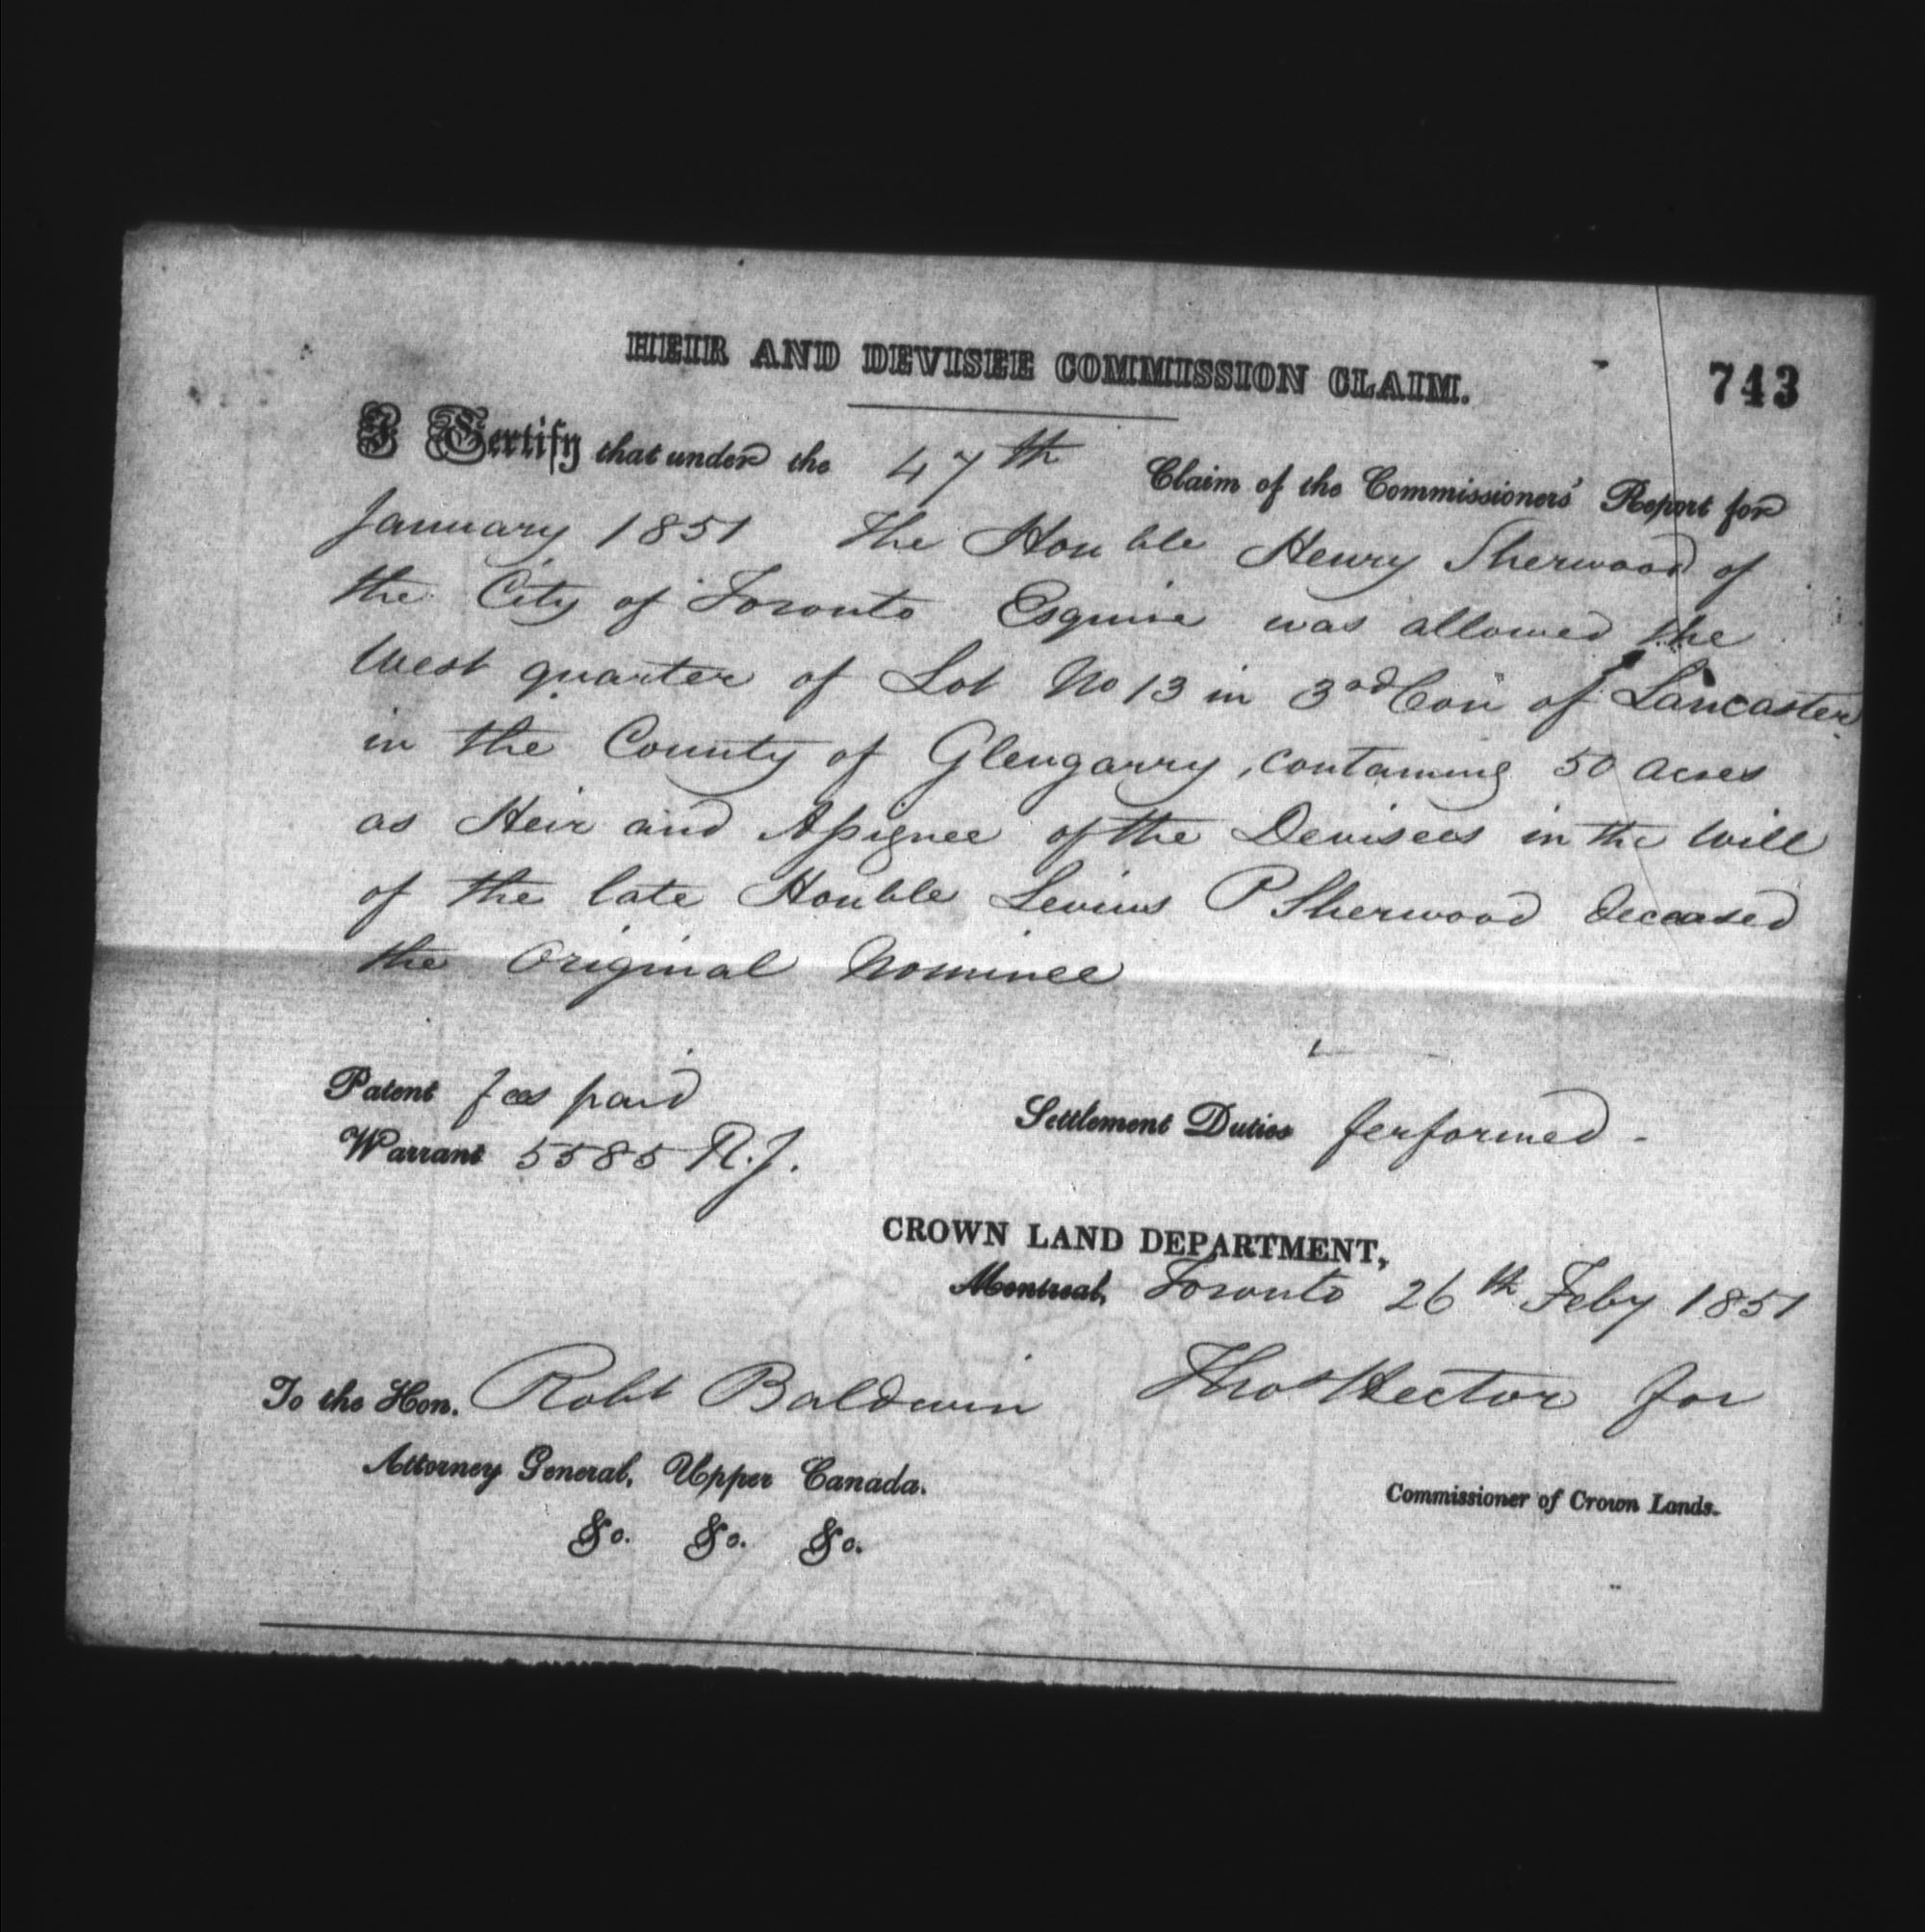 HEIR AND DEVISEE COMMISSION CLAIM.
743
I Certify that under the 47th Claim of the Commissioners' Report for
January 1851 The Honble Henry Sherwood of
the City of Toronto Esquire was allowed the
West quarter of Lot No 13 in 3rd Con of Lancaster
in the County of Glengarry, containing 50 acres
as Heir and Assignee of the Devisees in the Will
of the late Honble Levius P Sherwood deceased
the Original Nominee
Patent fees paid
Settlement Duties performed -
Warrant 5585 R.J.
CROWN LAND DEPARTMENT,
Montreal, Toronto 26th Feby 1851
To the Hon. Robt Baldwin
Thos Hector for
Attorney General, Upper Canada.
Commissioner of Crown Lands.
&c. &c. &c.